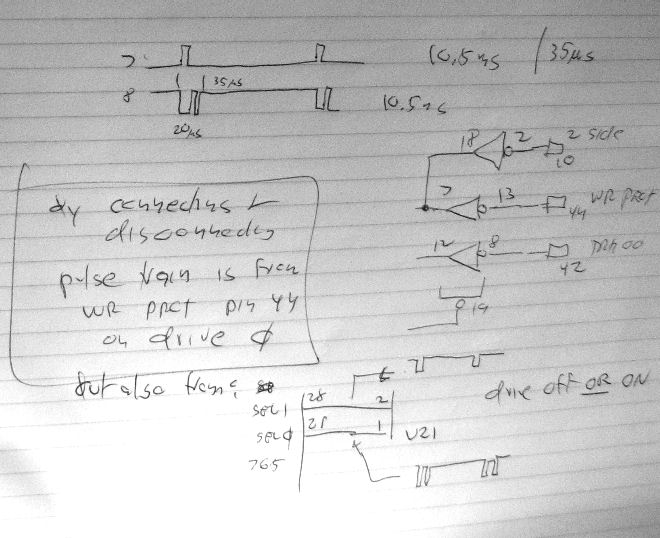 7
10.5ms / 35µs
35µs
8
10.5ms
20µs
18 2 2 side
10
7 13 WR PRCT
44
12 8
42
19
by connecting &
disconnecting
pulse train is from
WR PRCT pin 44
on drive φ
but also from:
SEL1 28 2
SELφ 21 1 U21
765
drive off OR ON